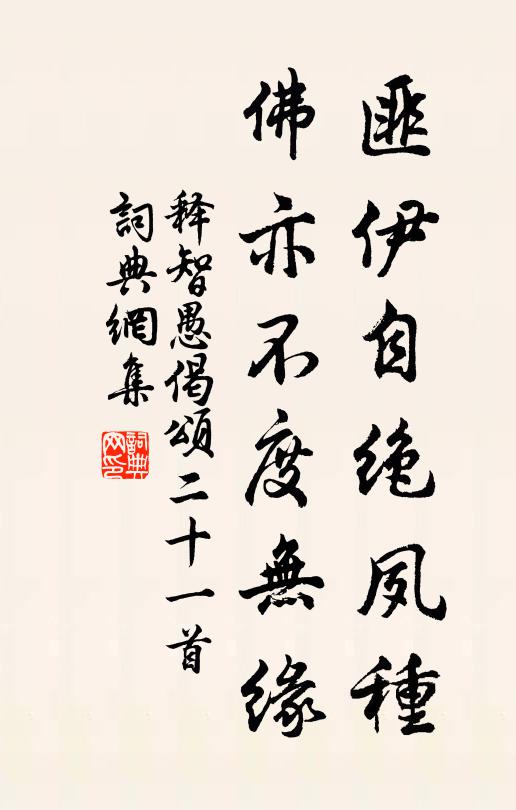 匪伊自绝夙種
佛亦不度無緣
释智愚偈頌二十一首
詞典網集
詞典网印